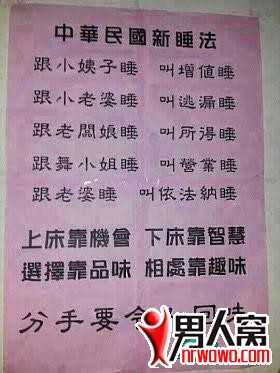 中華民國新睡法
跟小姨子睡 叫增值睡
跟小老婆睡 叫逃漏睡
跟老闆娘睡 叫所得睡
跟舞小姐睡 叫營業睡
跟老婆睡 叫依法納睡
上床靠機會 下床靠智慧
選擇靠品味 相處靠趣味
分手要令人回味
男人窝
nrwowo.com